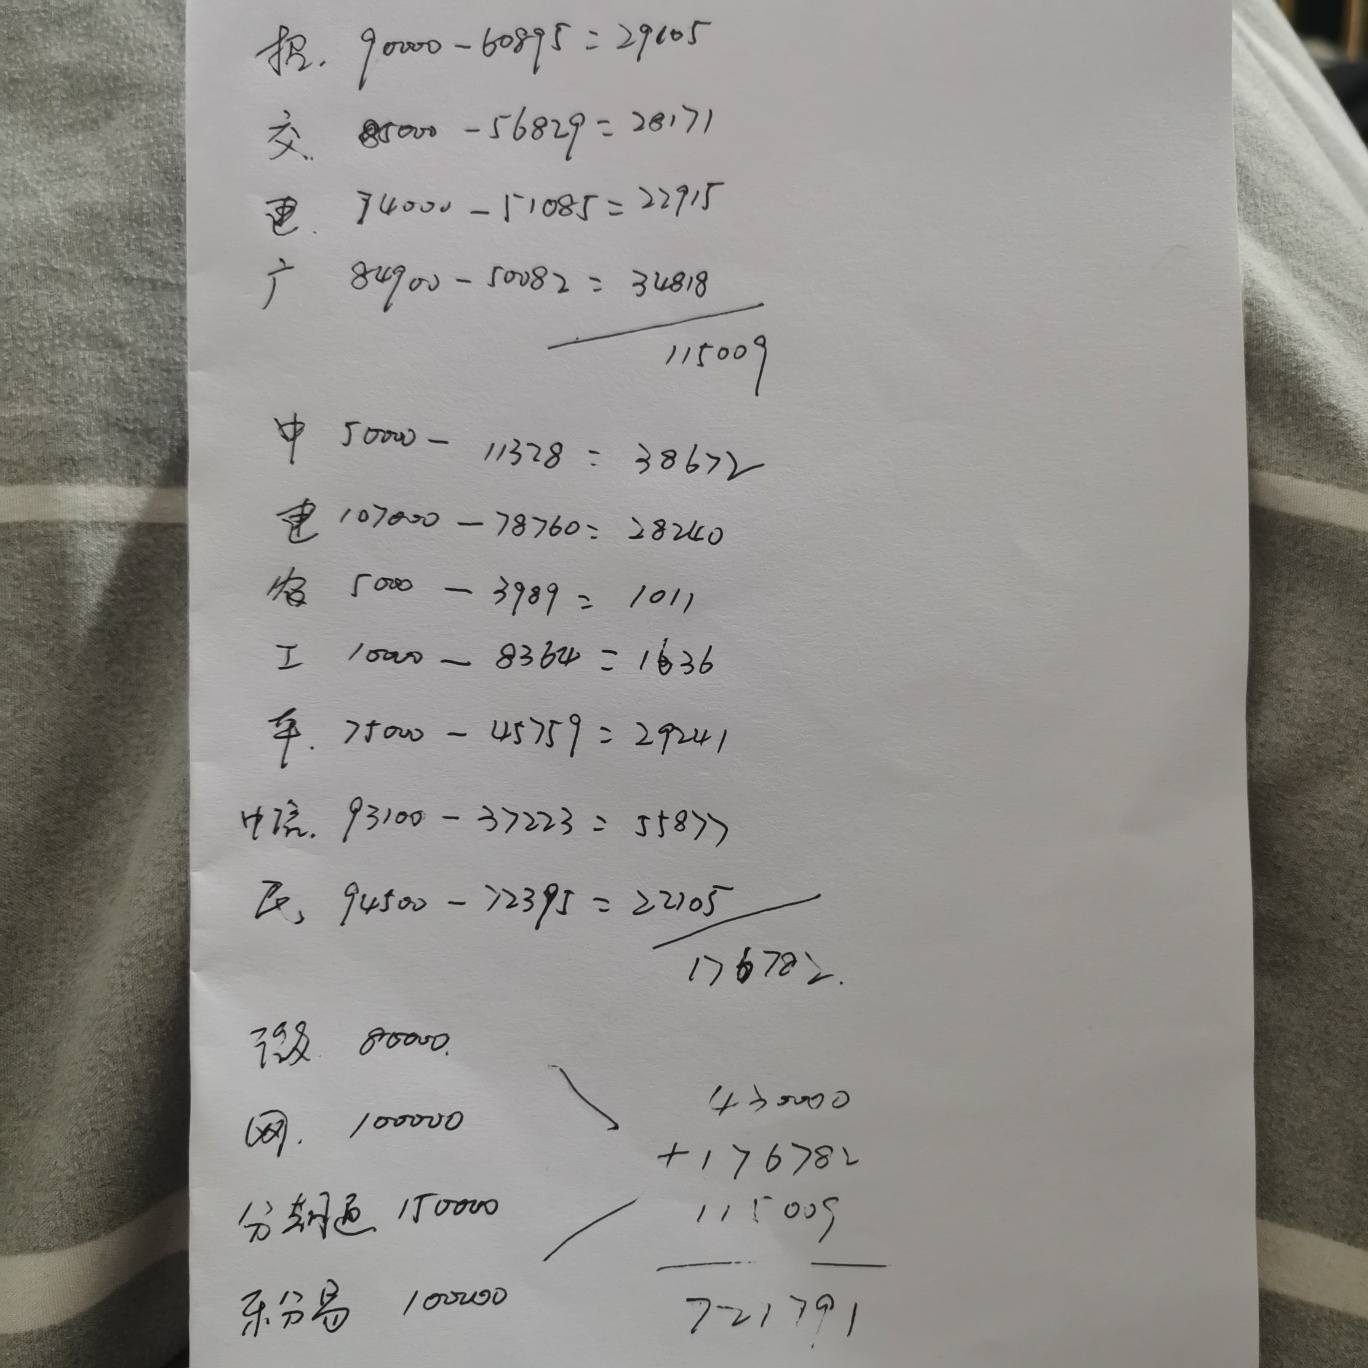 招. 90000-60895=29105
交. 85000-56829=28171
建. 74000-51085=22915
广 84900-50082=34818
115009
中 50000-11328=38672
建 107000-78760=28240
农 5000-3989=1011
工 10000-8364=1636
车. 75000-45759=29241
中信. 93100-37223=55877
民, 94500-72395=22105
176782.
80000.
网. 100000
分期通 150000
乐分易 100000
430000
+176782
115009
721791